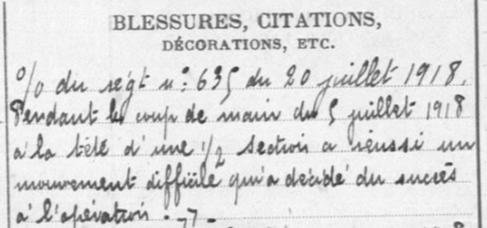 BLESSURES, CITATIONS,
DÉCORATIONS, ETC.
o/o du régt n: 635 du 20 juillet 1918.
Pendant le coup de main du 5 juillet 1918
à la tête d'une 1/2 section a réussi un
mouvement difficile qui a décidé du succès
à l'opération.